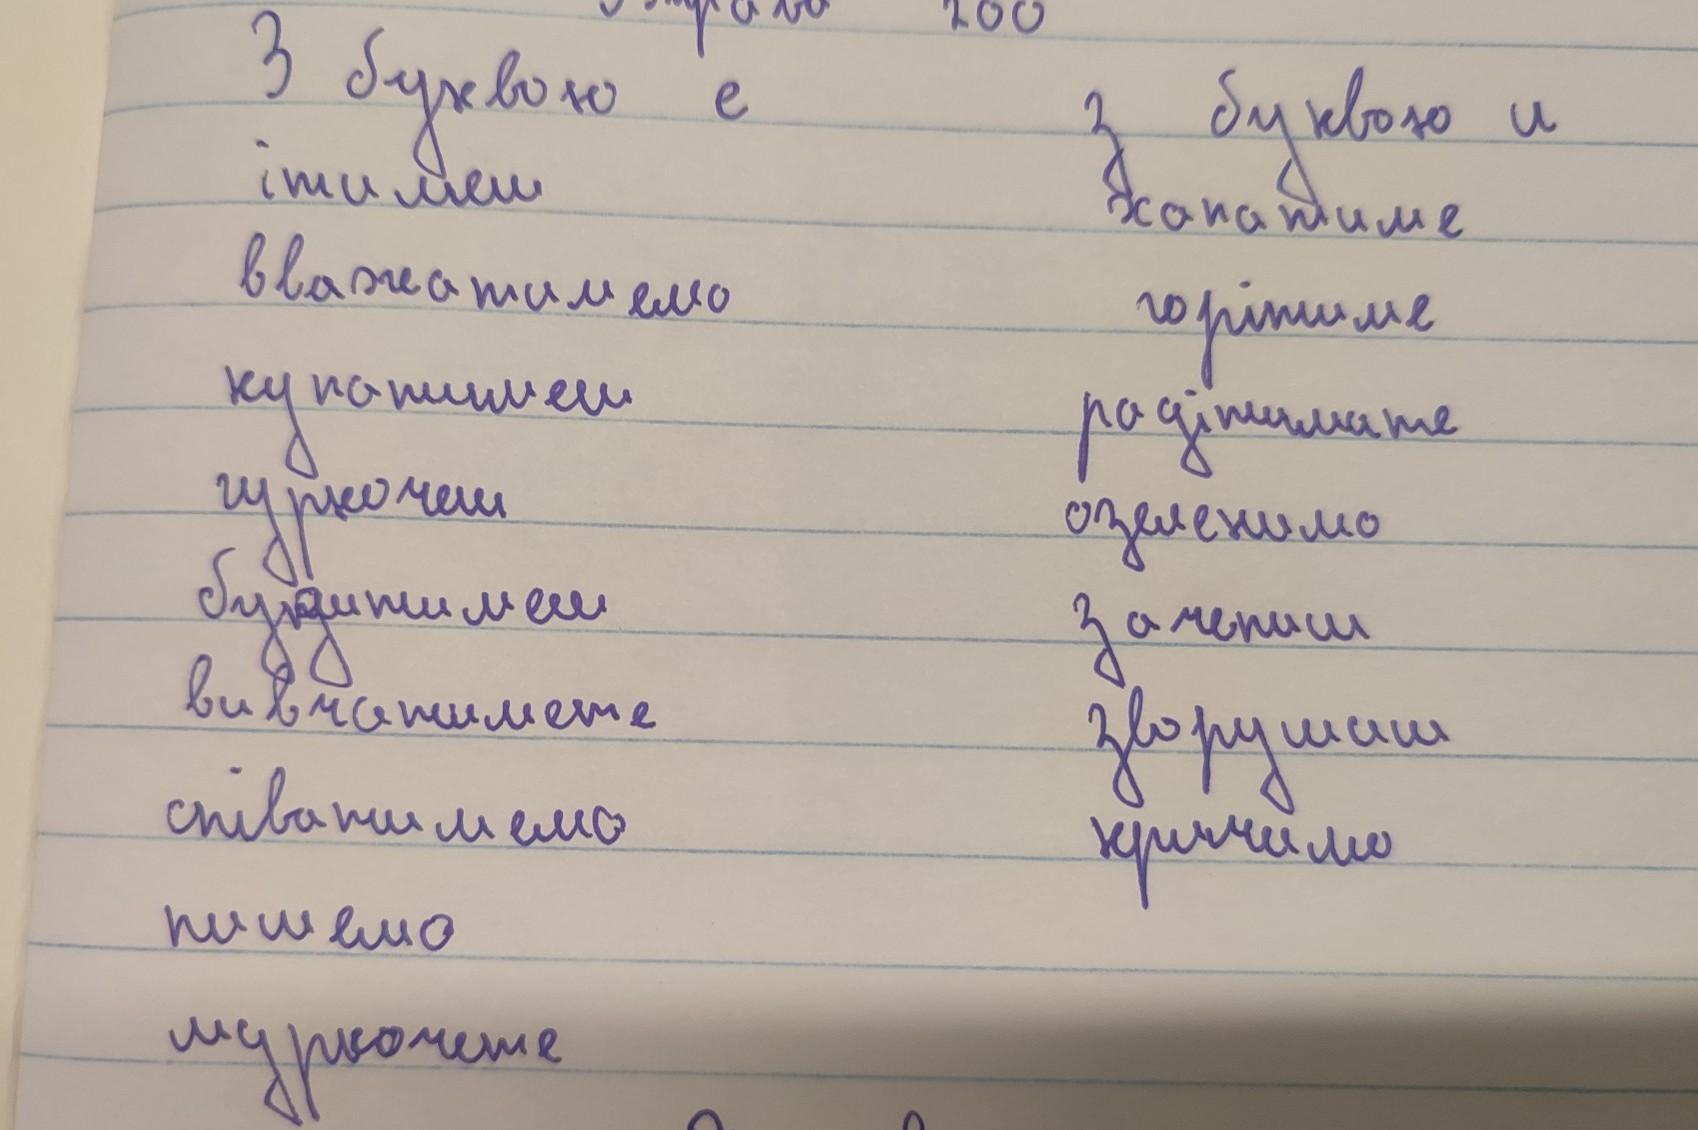 Вправа 200
З буквою е
ітимеш
вважатимемо
купатимеш
цуркочеш
будитимеш
вивчатимете
співатимемо
пишемо
муркочете
з буквою и
хапатиме
горітиме
радітимите
озеленимо
зачепиш
зворушиш
кричимо